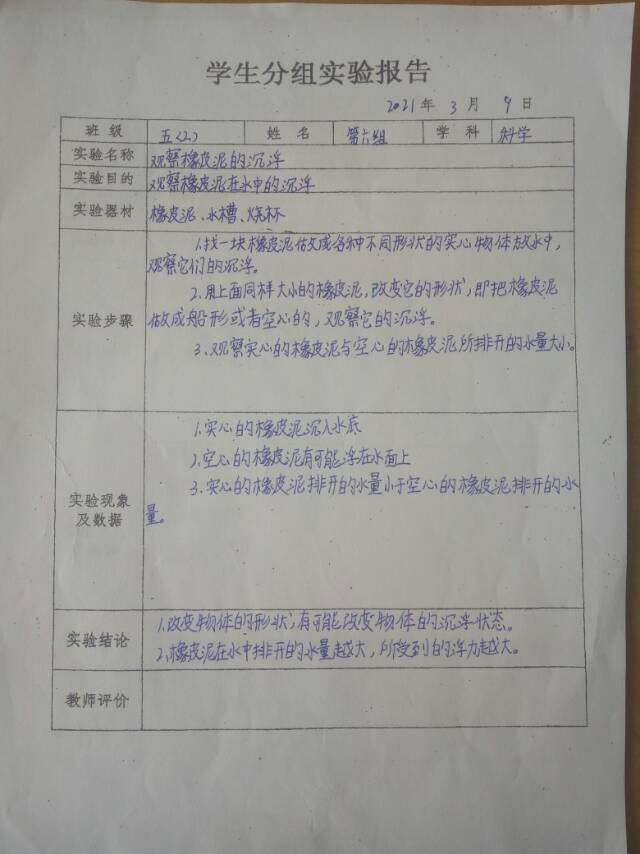 学生分组实验报告
2021年 3月 9日
班级 五(2) 姓名 第六组 学科 科学
实验名称 观察橡皮泥的沉浮
实验目的 观察橡皮泥在水中的沉浮
实验器材 橡皮泥、水槽、烧杯
实验步骤
1.找一块橡皮泥做成各种不同形状的实心物体放水中,
观察它们的沉浮。
2.用上面同样大小的橡皮泥,改变它的形状,即把橡皮泥
做成船形或者空心的,观察它的沉浮。
3.观察实心的橡皮泥与空心的橡皮泥所排开的水量大小。
实验现象
及数据
1.实心的橡皮泥沉入水底
2.空心的橡皮泥有可能浮在水面上
3.实心的橡皮泥排开的水量小于空心的橡皮泥排开的水
量。
实验结论
1.改变物体的形状,有可能改变物体的沉浮状态。
2.橡皮泥在水中排开的水量越大,所受到的浮力越大。
教师评价